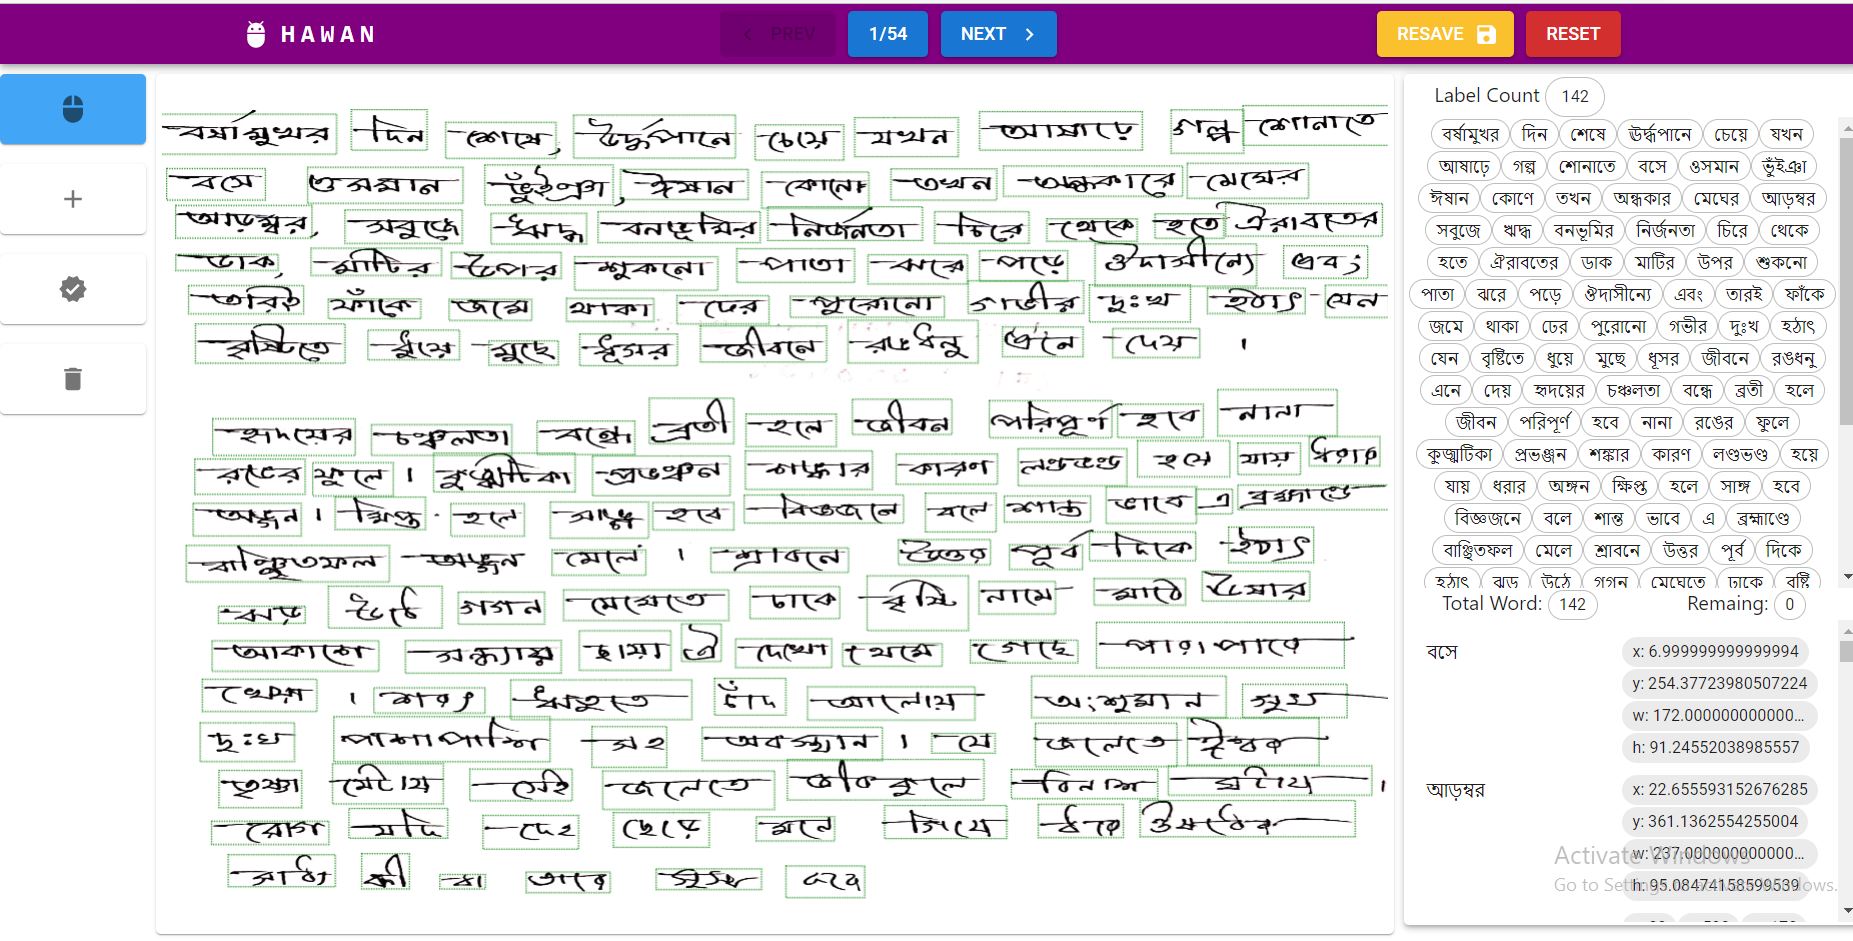 HAWAN
PREV
1/54
NEXT
RESAVE
RESET
বর্ষামুখর দিন শেষে, উর্দ্ধপানে চেয়ে যখন আষাঢ়ে গল্প শোনাতে
বসে ওসমান ভুঁইঞা, ঈষান কোনে তখন অন্ধকারে মেঘের
আড়ম্বর, সবুজে ঋদ্ধ বনভূমির নির্জনতা চিরে থেকে হতে ঐরাবতের
ডাক, মাটির উপর শুকনো পাতা ঝরে পড়ে ঔদাসীন্যে এবং
তারই ফাঁকে জমে থাকা ঢের পুরোনো গভীর দুঃখ হঠাৎ যেন
বৃষ্টিতে ধুয়ে মুছে ধূসর জীবনে রঙধনু এনে দেয় ।
হৃদয়ের চঞ্চলতা বন্ধে ব্রতী হলে জীবন পরিপূর্ণ হবে নানা
রঙের ফুলে । কুজ্ঝটিকা প্রভঞ্জন শঙ্কার কারণ লণ্ডভণ্ড হয়ে যায় ধরার
অঙ্গন । ক্ষিপ্ত হলে সাঙ্গ হবে বিজ্ঞজনে বলে শান্ত ভাবে এ ব্রহ্মাণ্ডে
বাঞ্ছিতফল অঙ্গন মেলে । শ্রাবনে উত্তর পূর্ব দিকে হঠাৎ
ঝড় উঠে গগন মেঘেতে ঢাকে বৃষ্টি নামে মাঠে উষার
আকাশে সন্ধ্যায় ছায়া ঐ দেখো থেমে গেছে পারাপারে
খেয়া । শরৎ ঋতুতে চাঁদ আলোয় অংশুমান সুখ
দুঃখ পাশাপাশি সহ অবস্থান । যে জলেতে ঈশ্বর
তৃষ্ণা মেটায় সেই জলেতে জীবকুলে বিনাশ ঘটায় ।
রোগ যদি দেহ ছেড়ে মনে গিয়ে ধরে ঔষধের
সাধ্য কী বা তারে সুস্থ করে
Label Count 142
বর্ষামুখর দিন শেষে ঊর্দ্ধপানে চেয়ে যখন
আষাঢ়ে গল্প শোনাতে বসে ওসমান ভুঁইঞা
ঈষান কোণে তখন অন্ধকার মেঘের আড়ম্বর
সবুজে ঋদ্ধ বনভূমির নির্জনতা চিরে থেকে
হতে ঐরাবতের ডাক মাটির উপর শুকনো
পাতা ঝরে পড়ে ঔদাসীন্যে এবং তারই ফাঁকে
জমে থাকা ঢের পুরোনো গভীর দুঃখ হঠাৎ
যেন বৃষ্টিতে ধুয়ে মুছে ধূসর জীবনে রঙধনু
এনে দেয় হৃদয়ের চঞ্চলতা বন্ধে ব্রতী হলে
জীবন পরিপূর্ণ হবে নানা রঙের ফুলে
কুজ্ঝটিকা প্রভঞ্জন শঙ্কার কারণ লণ্ডভণ্ড হয়ে
যায় ধরার অঙ্গন ক্ষিপ্ত হলে সাঙ্গ হবে
বিজ্ঞজনে বলে শান্ত ভাবে এ ব্রহ্মাণ্ডে
বাঞ্ছিতফল মেলে শ্রাবনে উত্তর পূর্ব দিকে
হঠাৎ ঝড় উঠে গগন মেঘেতে ঢাকে বৃষ্টি
Total Word: 142 Remaing: 0
বসে x: 6.999999999999994
y: 254.37723980507224
w: 172.000000000000...
h: 91.24552038985557
আড়ম্বর x: 22.655593152676285
y: 361.1362554255004
w: 237.000000000000...
h: 95.08474158599539
Activate Windows
Go to Settings to activate Windows.